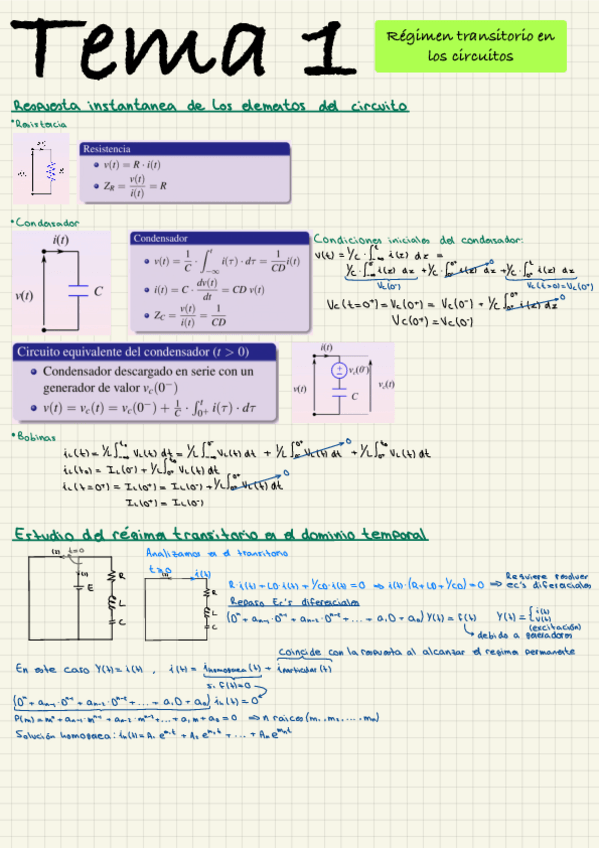 Tema 1
Régimen transitorio en
los circuitos
Respuesta instantanea de los elementos del circuito
•Resistencia
Resistencia
• v(t) = R · i(t)
• Z_R = v(t)/i(t) = R
•Condensador
i(t)
v(t)
C
Condensador
• v(t) = 1/C · ∫_{-∞}^{t} i(τ) · dτ = 1/CD i(t)
• i(t) = C · dv(t)/dt = CD v(t)
• Z_C = v(t)/i(t) = 1/CD
Condiciones iniciales del condensador:
Vc(0⁻)
Vc(t=0⁺)=Vc(0⁺)
Vc(t=0⁺) = Vc(0⁺) = Vc(0⁻) + 1/C ∫_{0⁻}^{0⁺} i(z) dz
0
Vc(0⁺) = Vc(0⁻)
Circuito equivalente del condensador (t > 0)
• Condensador descargado en serie con un
generador de valor v_c(0⁻)
• v(t) = v_c(t) = v_c(0⁻) + 1/C · ∫_{0⁺}^{t} i(τ) · dτ
i(t)
v_c(0⁻)
v(t)
C
v_c(t)
•Bobinas
I_L(0⁺) = I_L(0⁻)
Estudio del régimen transitorio en el dominio temporal
t=0
E
R
L
C
Analizamos en el transitorio
t>0
i(t)
R
L
C
R·i(t) + LD·i(t) + 1/CD·i(t) = 0 ⇒ i(t)·(R+LD+1/CD) = 0 ⇒
Requiere resolver
ec's diferenciales
Repaso Ec's diferenciales
(Dⁿ + a_{n-1}·Dⁿ⁻¹ + a_{n-2}·Dⁿ⁻² + ... + a₁D + a₀) Y(t) = f(t)
Y(t) = { i(t)
v(t)
(excitación)
debido a generadores
coincide con la respuesta al alcanzar el regimen permanente
En este caso Y(t) = i(t), i(t) = i_homogenea(t) + i_particular(t)
s. f(t)=0
(Dⁿ + a_{n-1}·Dⁿ⁻¹ + a_{n-2}·Dⁿ⁻² + ... + a₁D + a₀) i_h(t) = 0
P(m) = mⁿ + a_{n-1}·mⁿ⁻¹ + a_{n-2}·mⁿ⁻² + ... + a₁m + a₀ = 0 ⇒ n raices (m₁, m₂, ..., m_n)
Solución homogenea: i_h(t) = A₁ e^{m₁t} + A₂ e^{m₂t} + ... + A_n e^{m_n t}